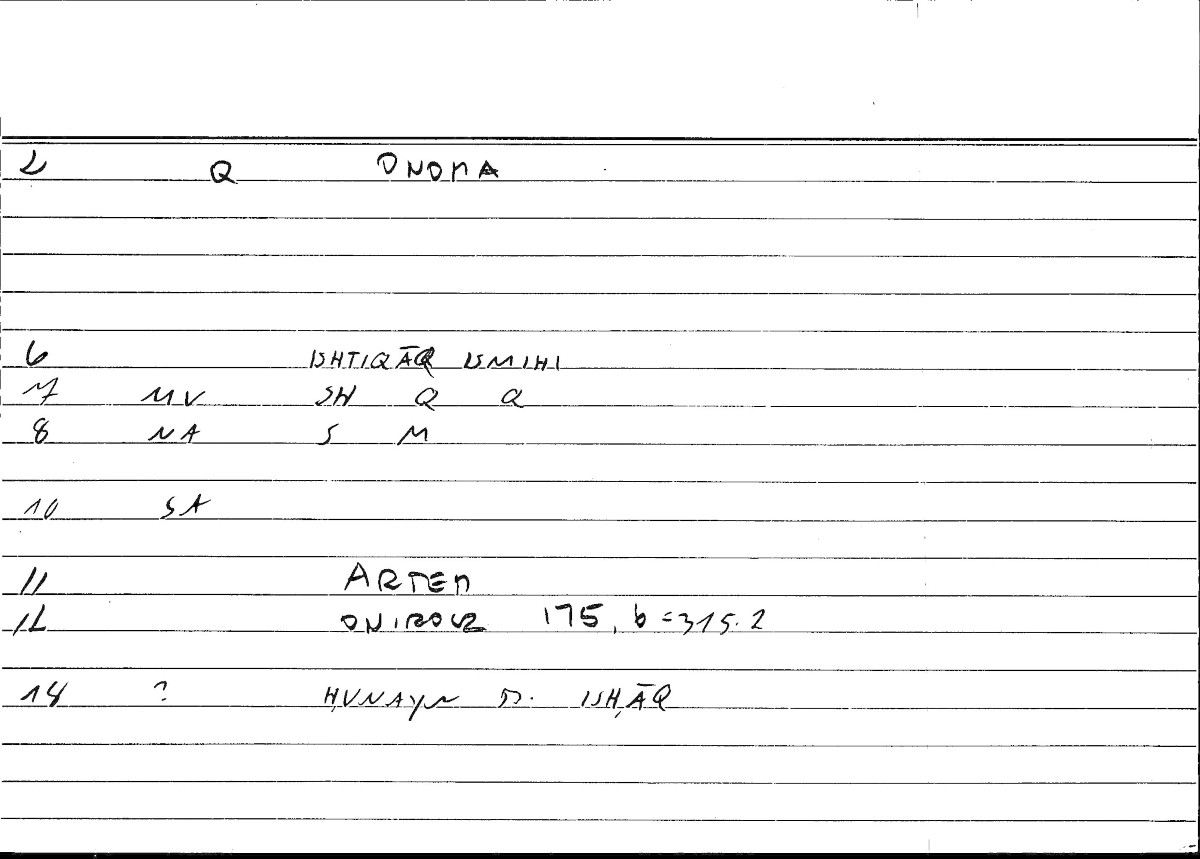 2 Q ONOMA
6 ISHTIQĀQ ISMIHI
7 MV SH Q Q
8 NA S M
10 SA
11 ARTEM
12 ONIROCR 175, 6 = 315.2
14 ? ḤUNAYN B. ISḤĀQ